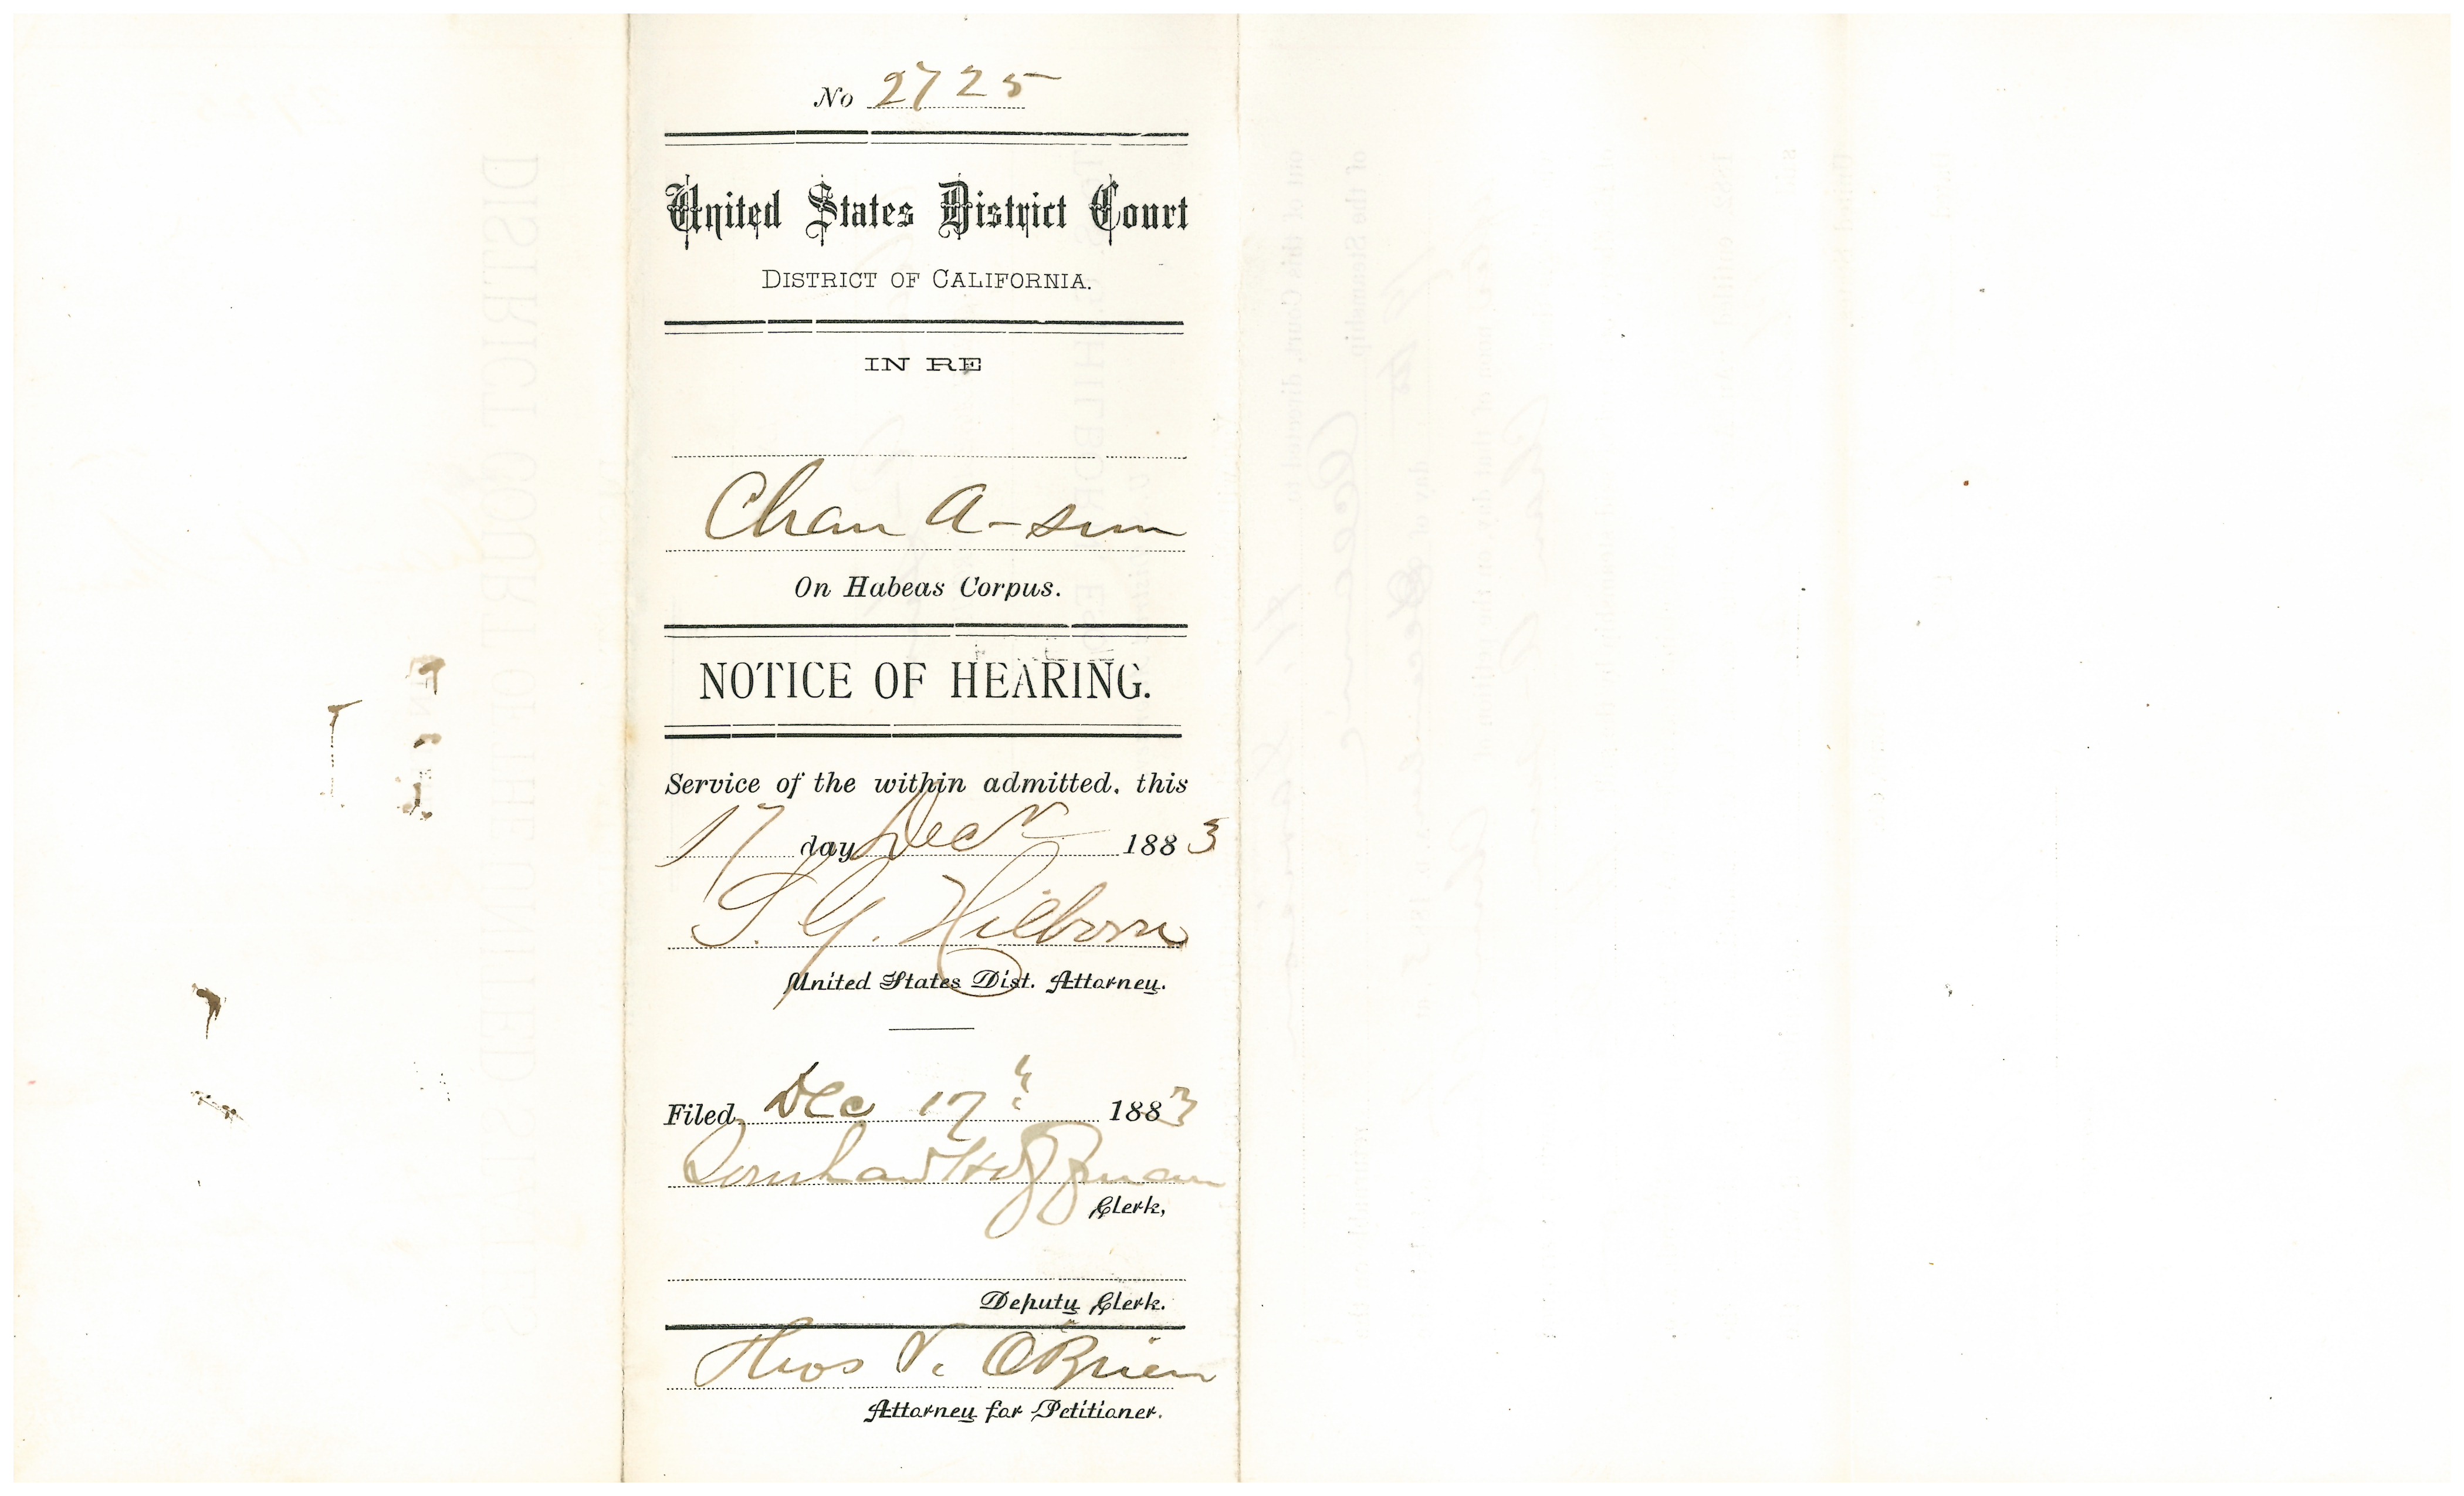 No 2725
United States District Court
DISTRICT OF CALIFORNIA.
IN RE
Chan A-sum
On Habeas Corpus.
NOTICE OF HEARING.
Service of the within admitted, this
17 day Decr 1883
S. G. Hilborn
United States Dist. Attorney.
Filed Dec 17th 1883
Hoffman
Clerk,
Deputy Clerk.
Thos V. O'Brien
Attorney for Petitioner.